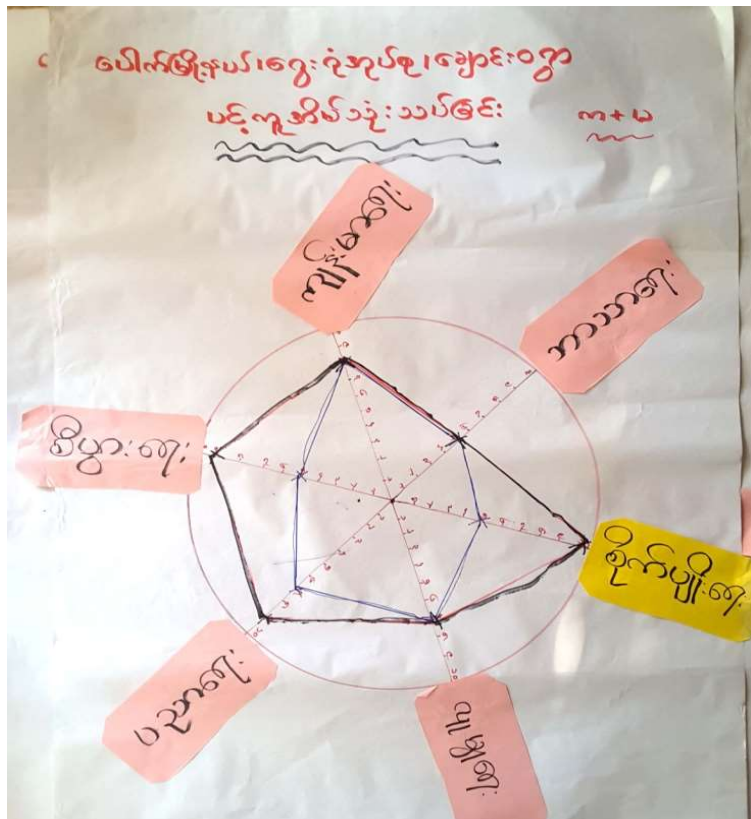 ပေါက်မြို့နယ်၊ ရွေးဂုံအုပ်စု၊ ချောင်းဝရွာ
ပင့်ကူအိမ်သုံးသပ်ခြင်း
က + မ
ကျန်းမာရေး
ဘာသာရေး
စီပွားရေး
စိုက်ပျိုးရေး
ပညာရေး